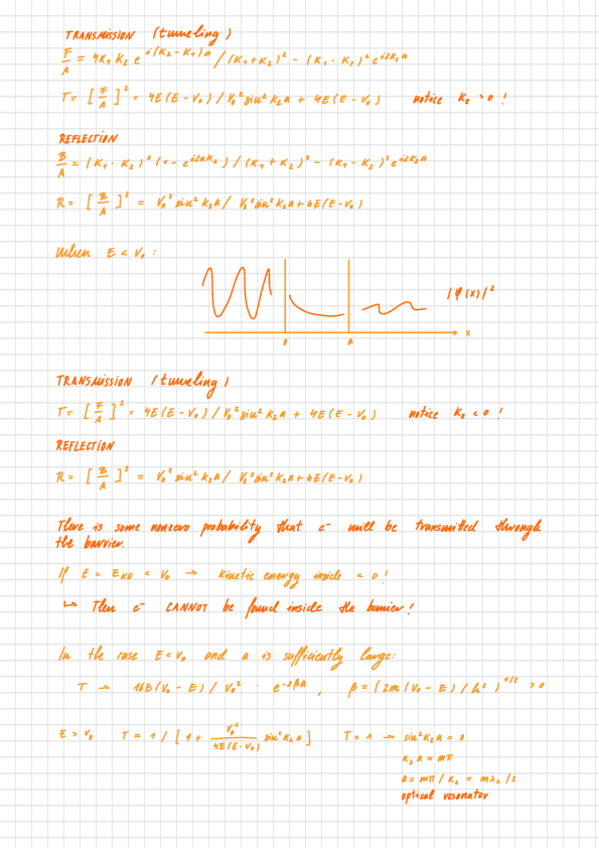 TRANSMISSION (tunneling)
F/A = 4K₁K₂ e^{i(K₂-K₁)a} / (K₁+K₂)² - (K₁-K₂)² e^{i2K₂a}
T = [F/A]² = 4E(E-V₀) / V₀² sin² K₂a + 4E(E-V₀) notice K₂ > 0 !
REFLECTION
B/A = (K₁-K₂)² (1-e^{i2aK₂}) / (K₁+K₂)² - (K₁-K₂)² e^{i2K₂a}
R = [B/A]² = V₀² sin² K₂a / V₀² sin² K₂a + 4E(E-V₀)
When E < V₀ :
|Ψ(x)|²
0 a x
TRANSMISSION (tunneling)
T = [F/A]² = 4E(E-V₀) / V₀² sin² K₂a + 4E(E-V₀) notice K₂ < 0 !
REFLECTION
R = [B/A]² = V₀² sin² K₂a / V₀² sin² K₂a + 4E(E-V₀)
There is some nonzero probability that e⁻ will be transmitted through
the barrier.
If E = E_KE < V₀ → kinetic energy inside < 0 !
↳ Then e⁻ CANNOT be found inside the barrier !
In the case E < V₀ and a is sufficiently large:
T → 16E(V₀-E) / V₀² · e^{-2βa} , β = (2m(V₀-E) / ħ²)^{1/2} > 0
E > V₀ T = 1 / [1 + V₀²/4E(E-V₀) sin² K₂a] T = 1 → sin² K₂a = 0
K₂a = mπ
a = mπ / K₂ = mλ₂ / 2
optical resonator